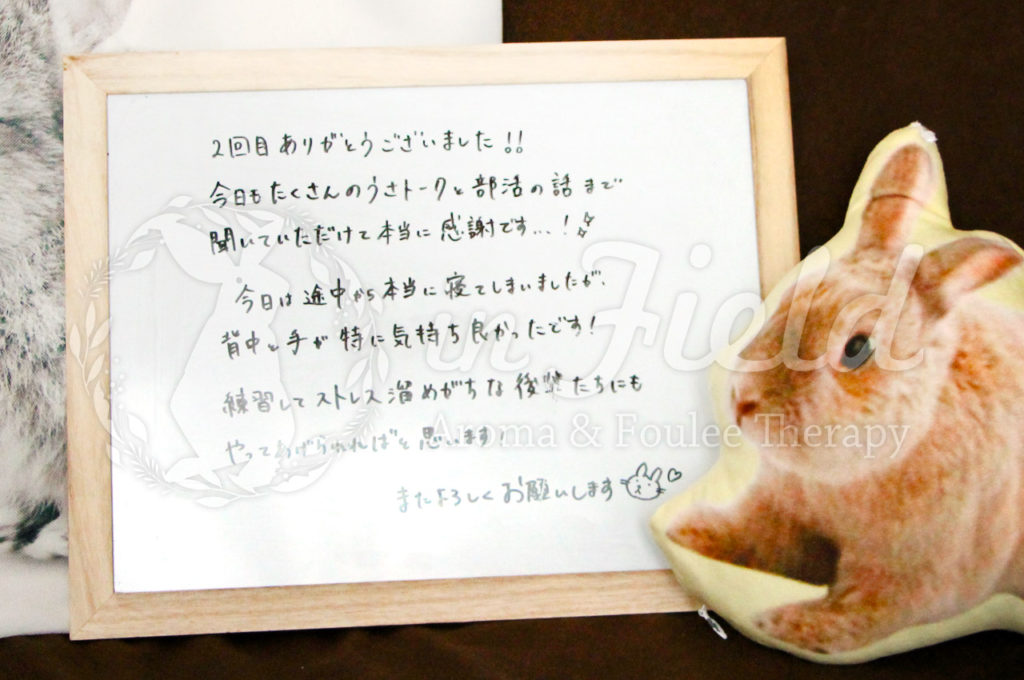 2回目ありがとうございました!!
今日もたくさんのうさトークと部活の話まで
聞いていただけて本当に感謝です…!
今日は途中から本当に寝てしまいましたが、
背中と手が特に気持ち良かったです!
練習してストレス溜めがちな後輩たちにも
やってあげられればと思います!
またよろしくお願いします
in Field
Aroma & Foulee Therapy